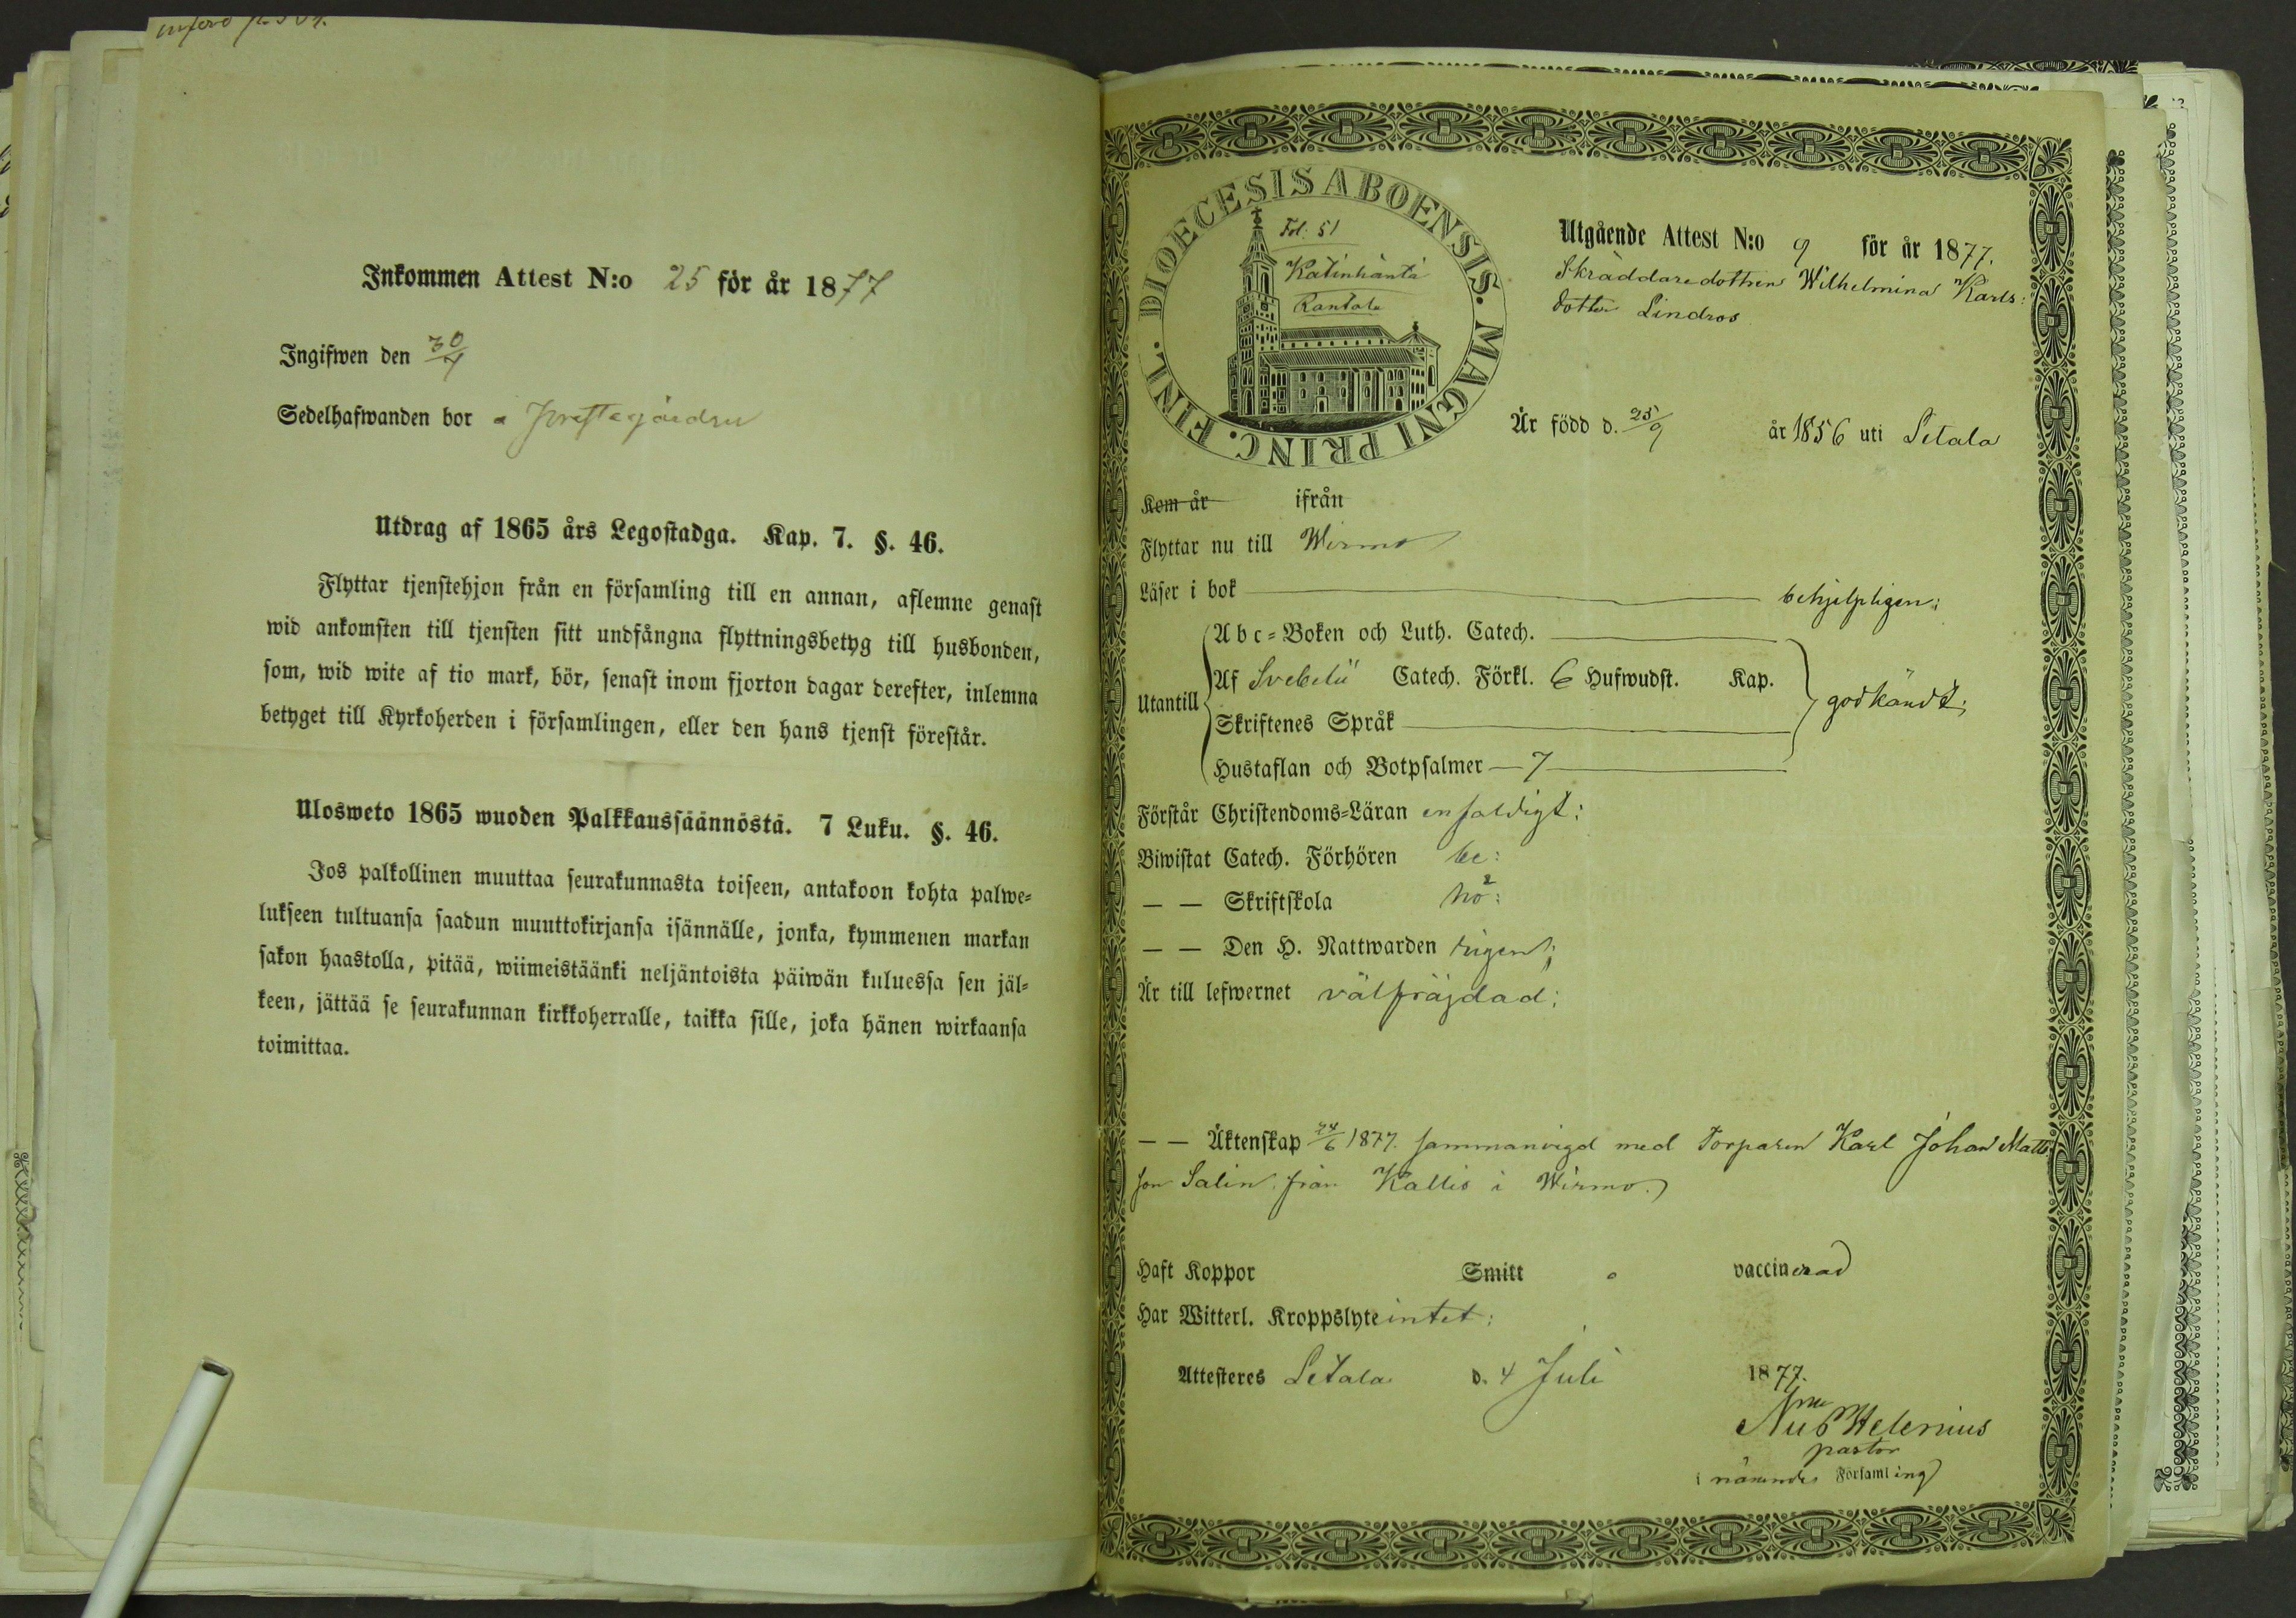 Inkommen Attest N:o 25 för år 1877
Ingifwen den 30/7
Sedelhafwanden bor
Utdrag af 1865 års Legostadga. Kap. 7. §. 46.
Flyttar tjenstehjon från en församling till en annan, aflemne genast
wid ankomsten till tjensten sitt undfångna flyttningsbetyg till husbonden,
som, wid wite af tio mark, bör, senast inom fjorton dagar derefter, inlemna
betyget till Kyrkoherden i församlingen, eller den hans tjenst förestår.
Ulosweto 1865 wuoden Palkkaussäännöstä. 7 Luku. §. 46.
Jos palkollinen muuttaa seurakunnasta toiseen, antakoon kohta palwe-
lukseen tultuansa saadun muuttokirjansa isännälle, jonka, kymmenen markan
sakon haastolla, pitää, wiimeistäänki neljäntoista päiwän kuluessa sen jäl-
keen, jättää se seurakunnan kirkkoherralle, taikka sille, joka hänen wirkaansa
toimittaa.
DIOECESIS ABOENSIS. MAGNI PRINC. FINL.
Fol: 51
Katinhänta
Rantala
Utgående Attest N:o 9 för år 1877.
Skräddaredottren Wilhelmina Karls:
dotter Lindros
Är född d. 25/9 år 1856 uti Letala
Kom år ifrån
Flyttar nu till Wirmo
Läser i bok behjelpligen;
Abc-Boken och Luth. Catech.
Utantill Af Svebelii Catech. Förkl. 6 Hufwudst. Kap. godkändt;
Skriftenes Språk
Hustaflan och Botpsalmer 7
Förstår Christendoms-Läran enfaldigt:
Biwistat Catech. Förhören be:
— — Skriftskola hö:
— — Den H. Nattwarden rigen;
Är till lefwernet välfräjdad:
— — Äktenskap 24/6 1877. sammanvigd med Torparen Karl Johan Matts
son Salin från Kallis i Wirmo.
Haft Koppor Smitt vaccinerad
Har Witterl. Kroppslyte intet:
Attesteres Letala d. 4 Juli 1877.
Helenius
pastor
i nämnde Församling